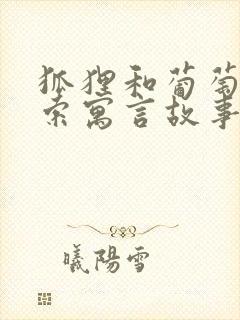 狐狸和葡萄
索寓言故事
曦陽雪